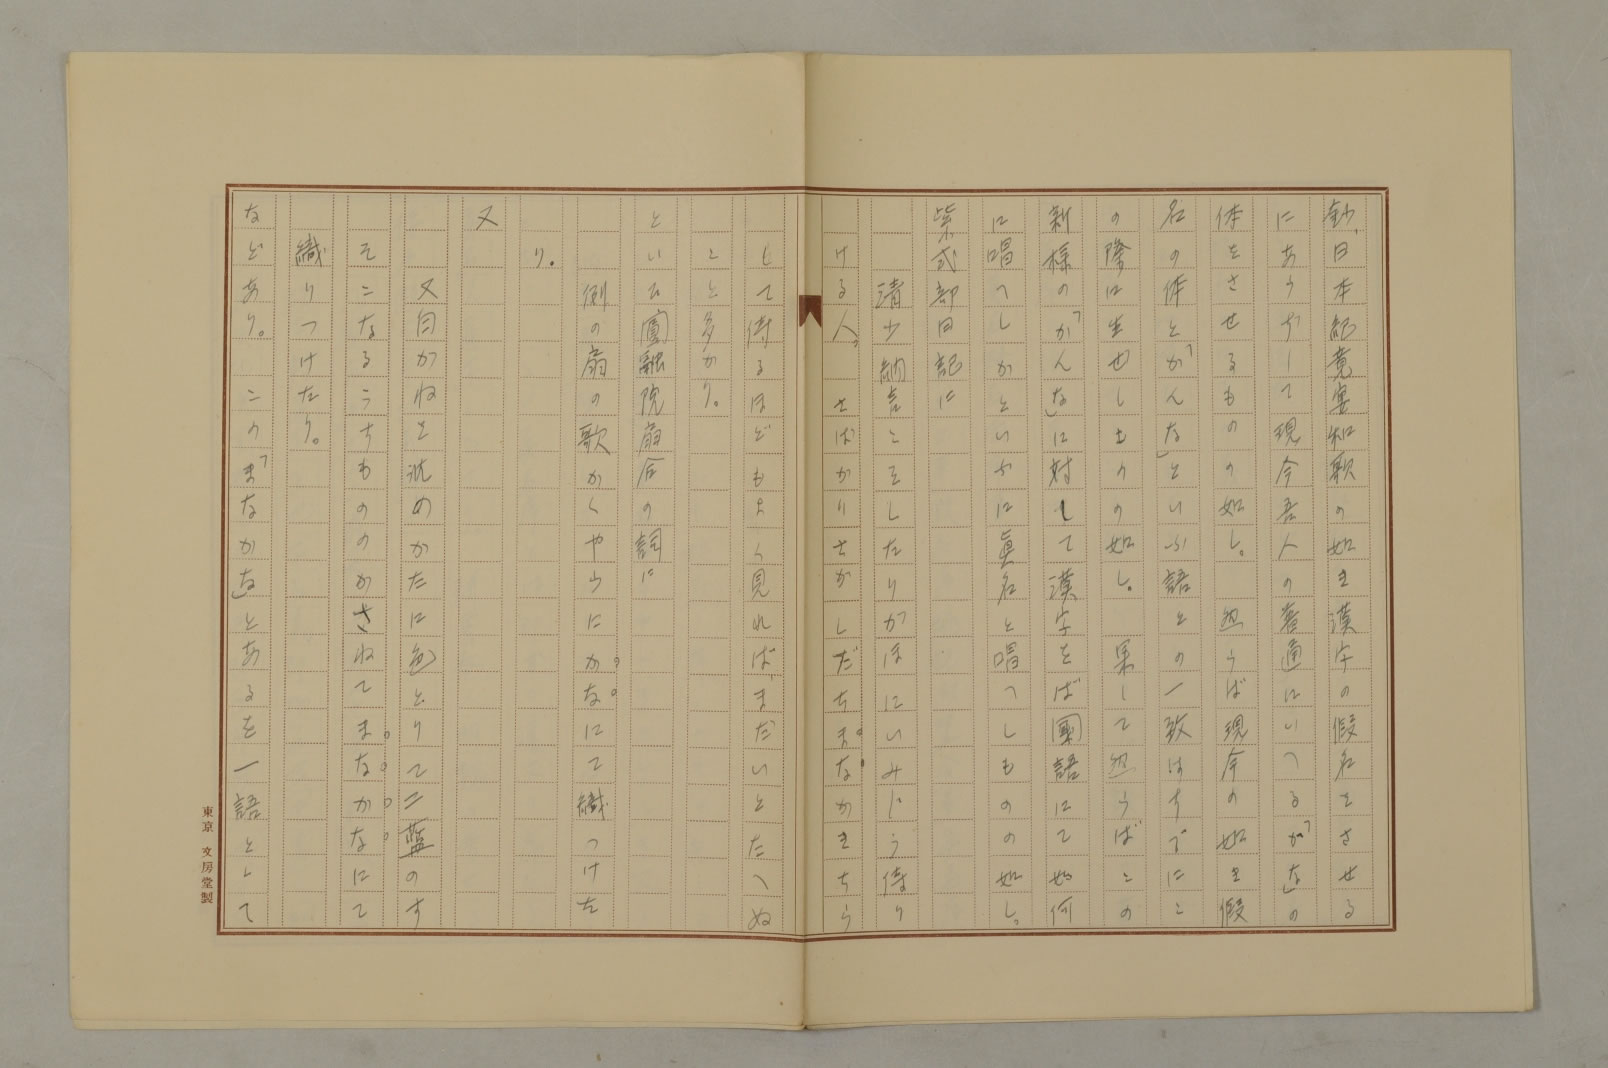 鈔、日本紀竟宴和歌の如き漢字の假名をさせる
にあらずして現今吾人の普通にいへる「かな」の
体をさせるものの如し。然らば現今の如き假
名の体と「かんな」といふ語との一致はすでにこ
の際に生ぜしものの如し。果して然らばこの
新様の「かんな」に対して漢字をば國語にて如何
に唱へしかといふに眞名と唱へしものの如し。
紫式部日記に
清少納言こそしたりがほにいみじう侍り
ける人。さばかりさかしだちまなかきちら
して侍るほどもよく見ればまだいとたへぬ
こと多かり。
といひ圓融院扇合の詞に
例の扇の歌かくやうにかなにて織つけた
り。
又
又白がねを沈めかたに色どりて二藍のす
そこなるうちもののかさねてまなかなにて
織りつけたり。
などあり。この「まなかな」とあるを一語として
東京 文房堂製